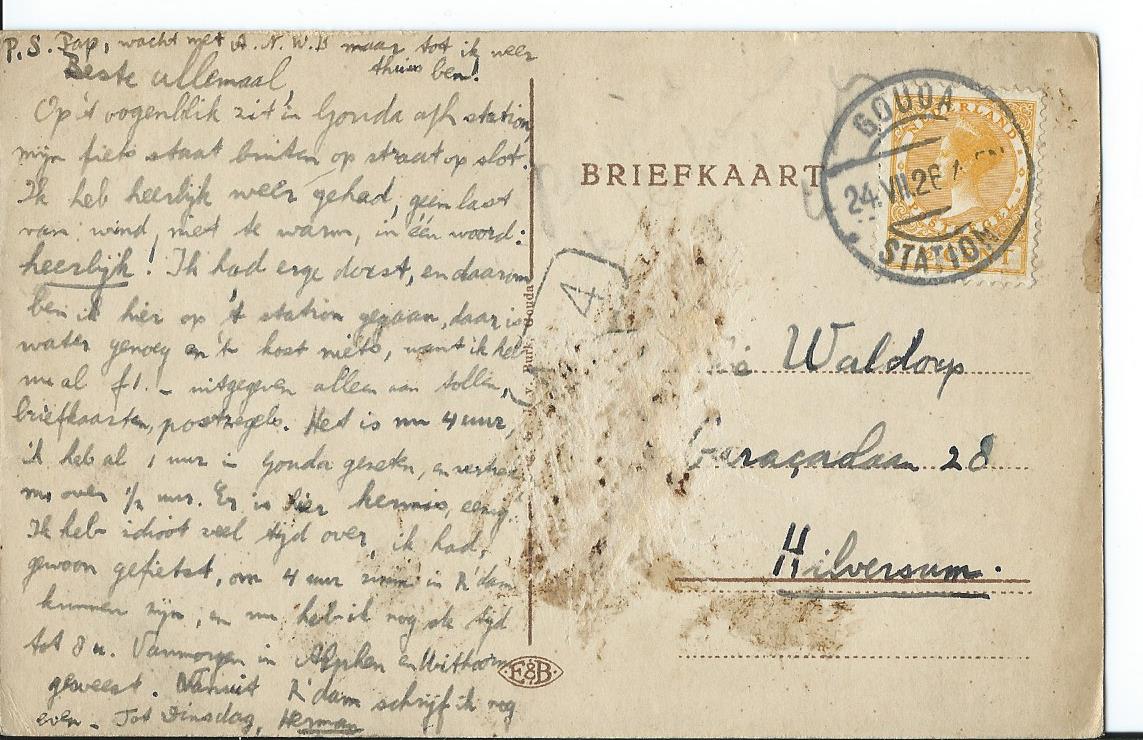 P.S. Pap, wacht met A.N.W.B maar tot ik weer
thuis ben!
Beste allemaal,
Op 't oogenblik zit 'k in Gouda a/h station
mijn fiets staat buiten op straat op slot.
Ik heb heerlijk weer gehad, geen last
van wind, niet te warm, in één woord:
heerlijk! Ik had erge dorst, en daarom
ben ik hier op 't station gegaan, daar is
water genoeg en 't kost niets, want ik heb
nu al f1.- uitgegeven alleen aan tollen,
briefkaarten, postzegels. Het is nu 4 uur,
ik heb al 1 uur in Gouda gezeten, en vertrek
nu over 1/2 uur. Er is hier kermis, eenig.
Ik heb idioot veel tijd over, ik had,
gewoon gefietst, om 4 uur in R'dam
kunnen zijn, en nu heb ik nog de tijd
tot 8 u. Vanmorgen in Alphen en Uithoorn
geweest. Vanuit R'dam schrijf ik nog
even - Tot Dinsdag, Herman
BRIEFKAART
GOUDA
24.VII.26
STATION
NEDERLAND
4
Gouda
E&B
Waldorp
Curaçaolaan 28
Hilversum.